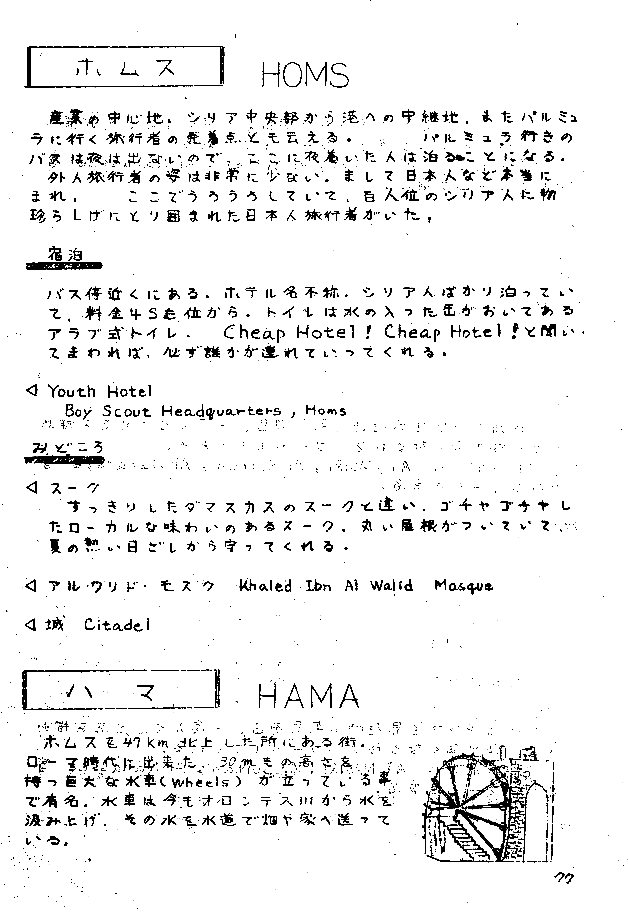 ホムス HOMS
産業の中心地。シリア中央部から港への中継地、またパルミュ
ラに行く旅行者の発着点とも云える。 パルミュラ行きの
バスは夜は出ないので、ここに夜着いた人は泊ることになる。
外人旅行者の姿は非常に少ない。まして日本人など本当に
まれ。 ここでうろうろしていて、百人位のシリア人に物
珍らしげにとり囲まれた日本人旅行者がいた。
宿泊
バス停近くにある。ホテル名不称。シリア人ばかり泊ってい
て、料金4S£位から。トイレは水の入った缶がおいてある
アラブ式トイレ。 Cheap Hotel! Cheap Hotel!と聞い
てまわれば、必ず誰かが連れていってくれる。
◁ Youth Hotel
Boy Scout Headquarters, Homs
みどころ
◁ スーク
すっきりしたダマスカスのスークと違い、ゴチャゴチャし
たローカルな味わいのあるスーク。丸い屋根がついていて、
夏の熱い日ざしから守ってくれる。
◁ アル・ワリド・モスク Khaled Ibn Al Walid Masque
◁ 城 Citadel
ハマ HAMA
ホムスを47km北上した所にある街。
ローマ時代に出来た、30mもの高さを
持つ巨大な水車(Wheels)が立っている事
で有名。水車は今もオロンテス川から水を
汲み上げ、その水を水道で畑や家へ送って
いる。
77